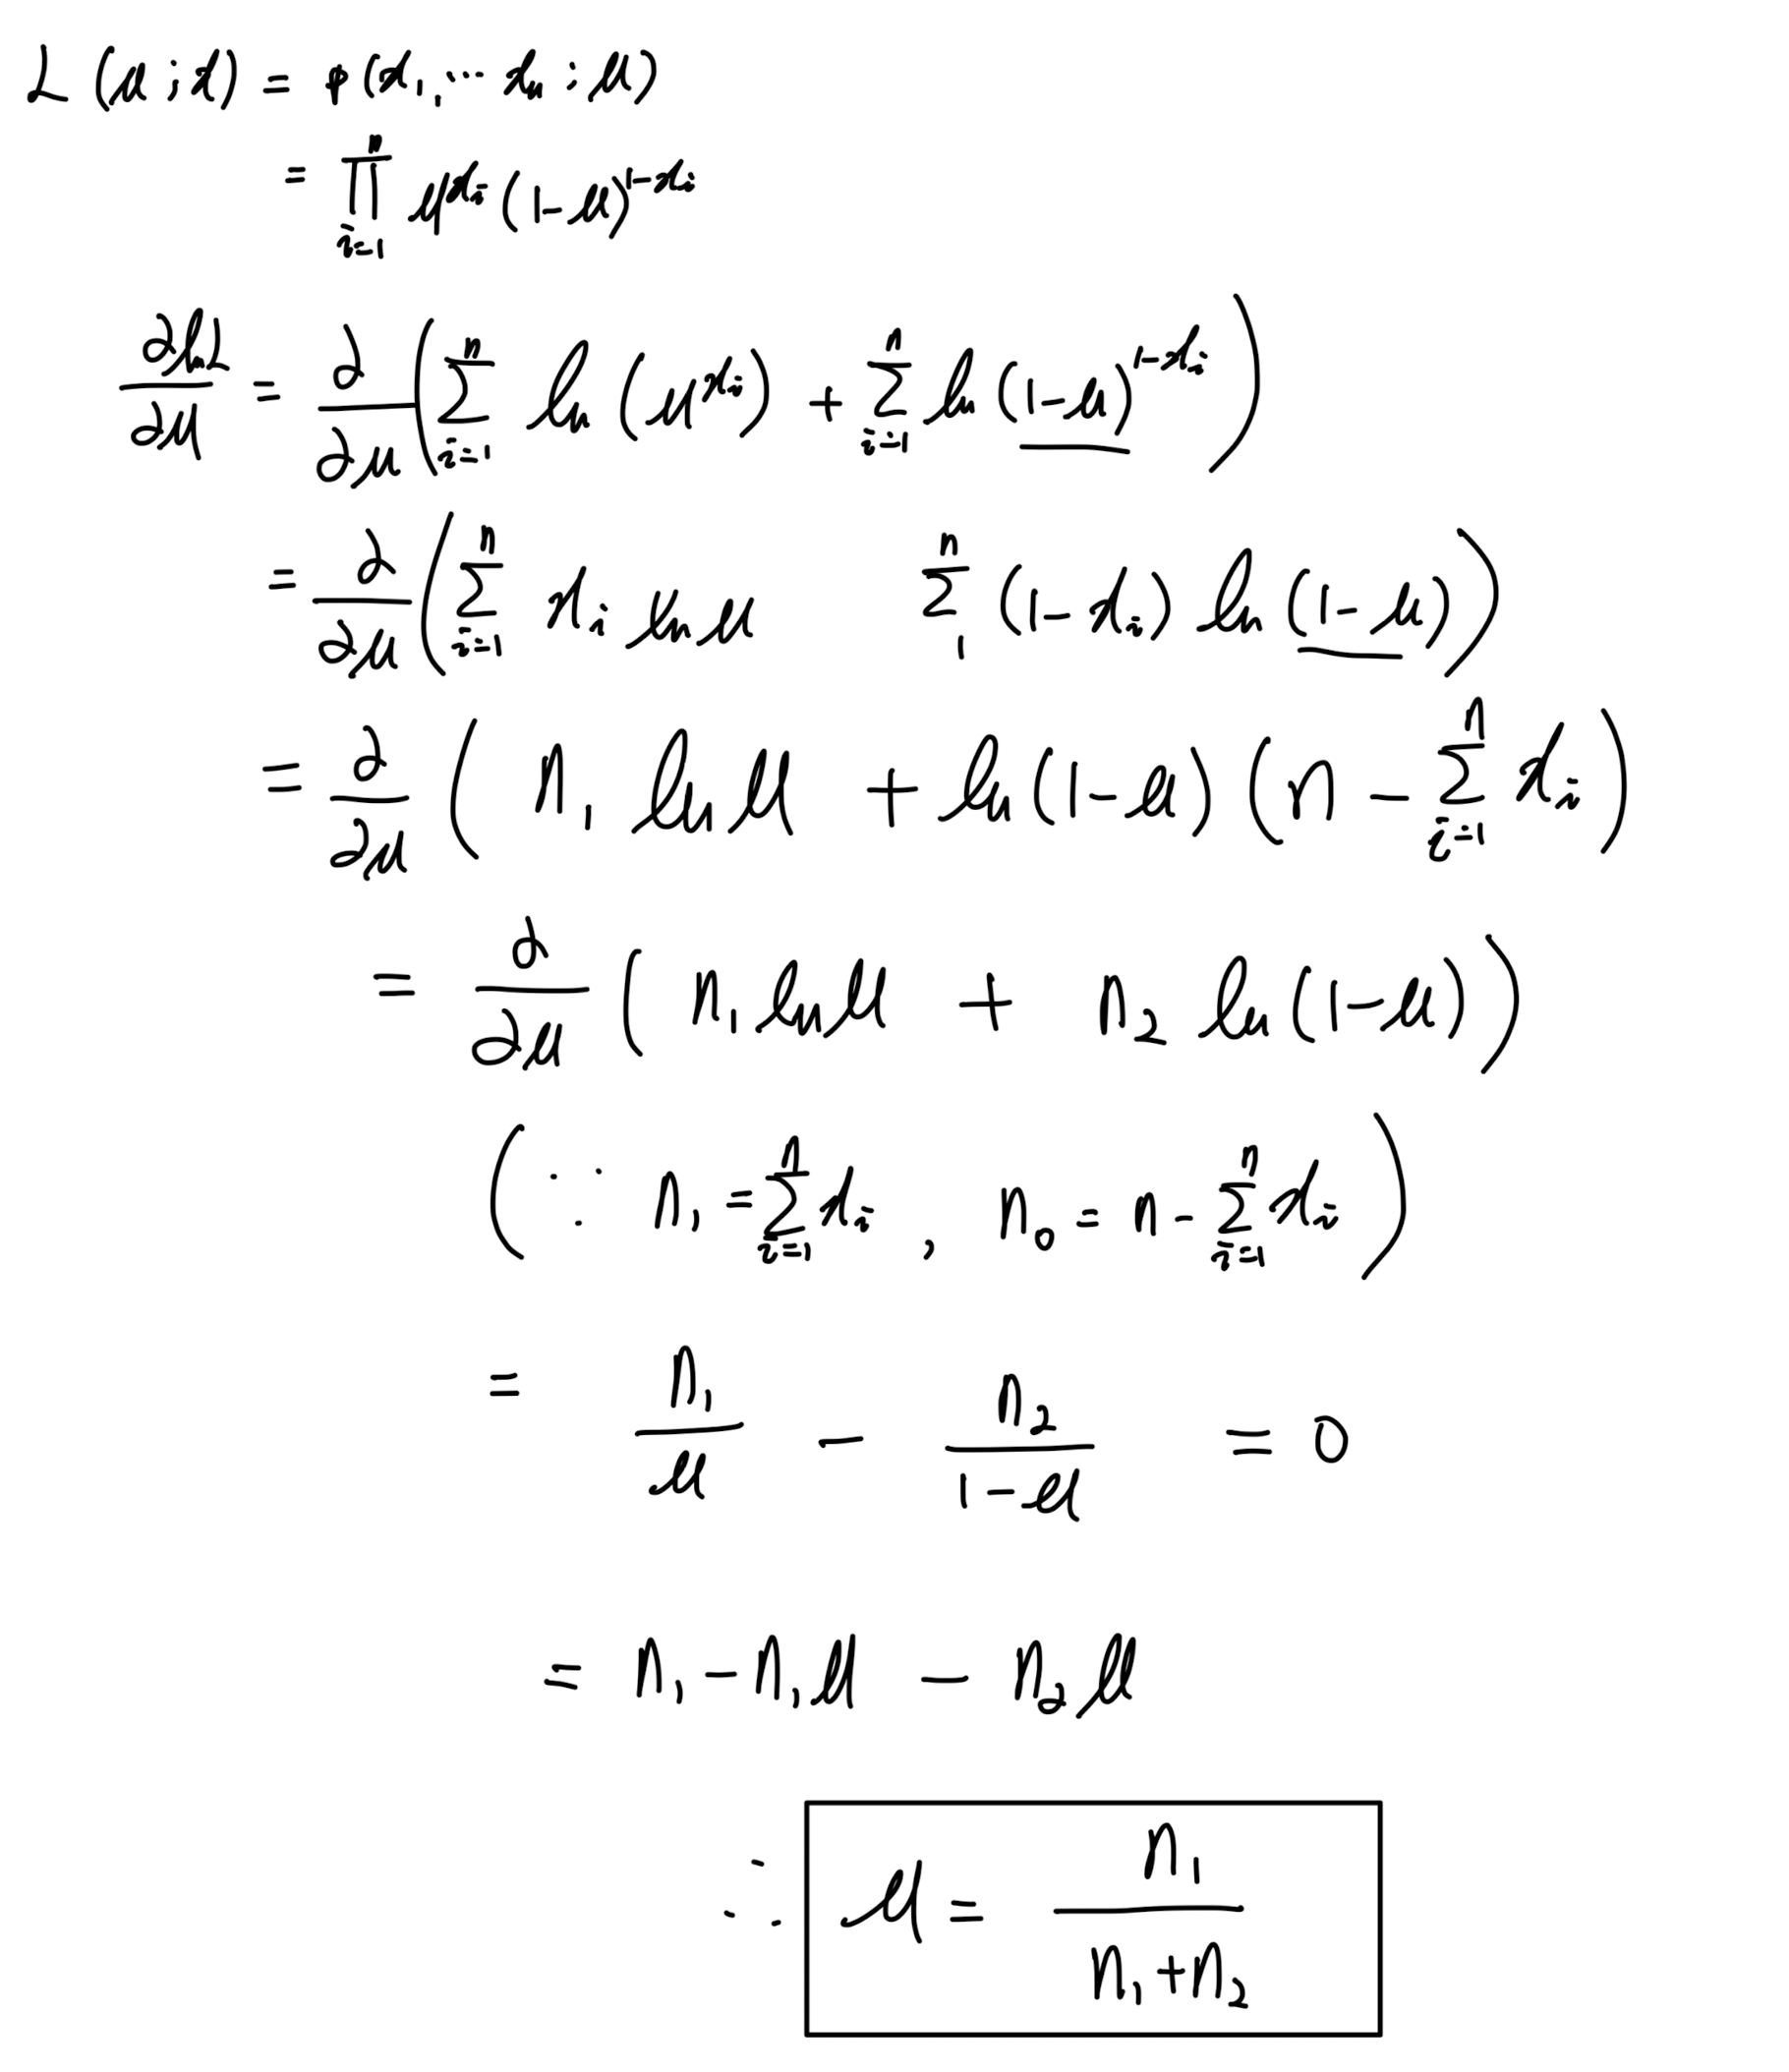 L(μ;x) = p(x₁, ⋯ xₙ ; μ)
= ∏ᵢ₌₁ⁿ μ^{xᵢ} (1-μ)^{1-xᵢ}
∂lnL/∂μ = ∂/∂μ ( ∑ᵢ₌₁ⁿ ln(μ^{xᵢ}) + ∑ᵢ₌₁ⁿ ln(1-μ)^{1-xᵢ} )
= ∂/∂μ ( ∑ᵢ₌₁ⁿ xᵢ lnμ ∑₁ⁿ (1-xᵢ) ln(1-μ) )
= ∂/∂μ ( n₁ lnμ + ln(1-μ)(n - ∑ᵢ₌₁ⁿ xᵢ )
= ∂/∂μ ( n₁ lnμ + n₂ ln(1-μ) )
( ∵ n₁ = ∑ᵢ₌₁ⁿ xᵢ , n₀ = n - ∑ᵢ₌₁ⁿ xᵢ )
= n₁/μ - n₂/(1-μ) = 0
= n₁ - n₁μ - n₂μ
∴ μ = n₁/(n₁+n₂)